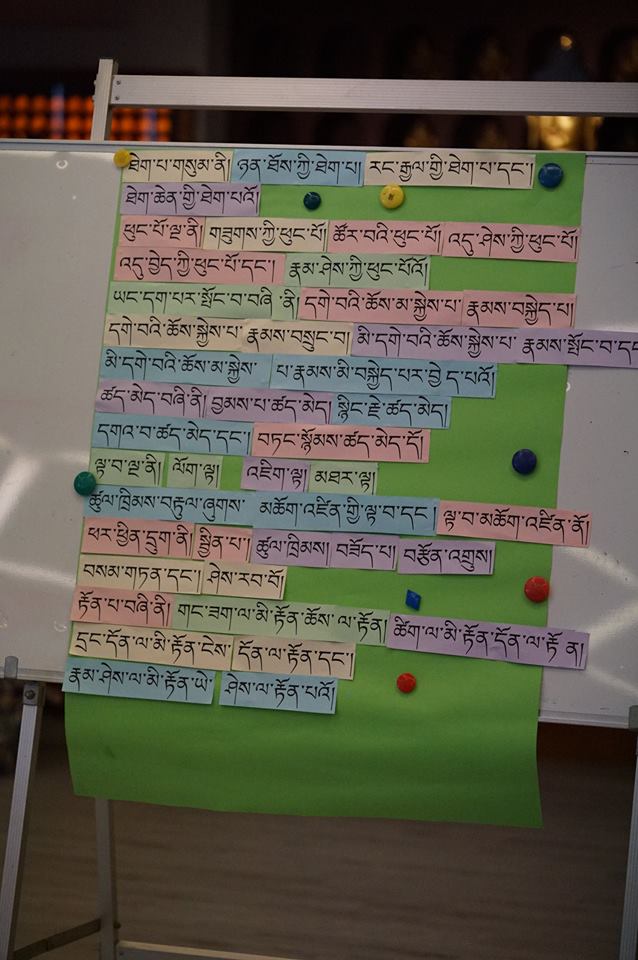 ཐེག་པ་གསུམ་ནི། ཉན་ཐོས་ཀྱི་ཐེག་པ། རང་རྒྱལ་གྱི་ཐེག་པ་དང་།
ཐེག་ཆེན་གྱི་ཐེག་པའོ།
ཕུང་པོ་ལྔ་ནི། གཟུགས་ཀྱི་ཕུང་པོ། ཚོར་བའི་ཕུང་པོ། འདུ་ཤེས་ཀྱི་ཕུང་པོ།
འདུ་བྱེད་ཀྱི་ཕུང་པོ་དང་། རྣམ་ཤེས་ཀྱི་ཕུང་པོའོ།
ཡང་དག་པར་སྤོང་བ་བཞི་ནི། དགེ་བའི་ཆོས་མ་སྐྱེས་པ་ རྣམས་བསྐྱེད་པ།
དགེ་བའི་ཆོས་སྐྱེས་པ་ རྣམས་བསྲུང་བ། མི་དགེ་བའི་ཆོས་སྐྱེས་པ་ རྣམས་སྤོང་བ་དང
མི་དགེ་བའི་ཆོས་མ་སྐྱེས་ པ་རྣམས་མི་བསྐྱེད་པར་བྱེད་པའོ།
ཚད་མེད་བཞི་ནི། བྱམས་པ་ཚད་མེད། སྙིང་རྗེ་ཚད་མེད།
དགའ་བ་ཚད་མེད་དང་། བཏང་སྙོམས་ཚད་མེད་དོ།
ལྟ་བ་ལྔ་ནི། ལོག་ལྟ། འཇིག་ལྟ། མཐར་ལྟ།
ཚུལ་ཁྲིམས་བརྟུལ་ཞུགས་ མཆོག་འཛིན་གྱི་ལྟ་བ་དང་། ལྟ་བ་མཆོག་འཛིན་ནོ།
ཕར་ཕྱིན་དྲུག་ནི། སྦྱིན་པ། ཚུལ་ཁྲིམས། བཟོད་པ། བརྩོན་འགྲུས།
བསམ་གཏན་དང་། ཤེས་རབ་བོ།
རྟོན་པ་བཞི་ནི། གང་ཟག་ལ་མི་རྟོན་ཆོས་ལ་རྟོན། ཚིག་ལ་མི་རྟོན་དོན་ལ་རྟོན།
དྲང་དོན་ལ་མི་རྟོན་ངེས་ དོན་ལ་རྟོན་དང་།
རྣམ་ཤེས་ལ་མི་རྟོན་ཡེ་ ཤེས་ལ་རྟོན་པའོ།